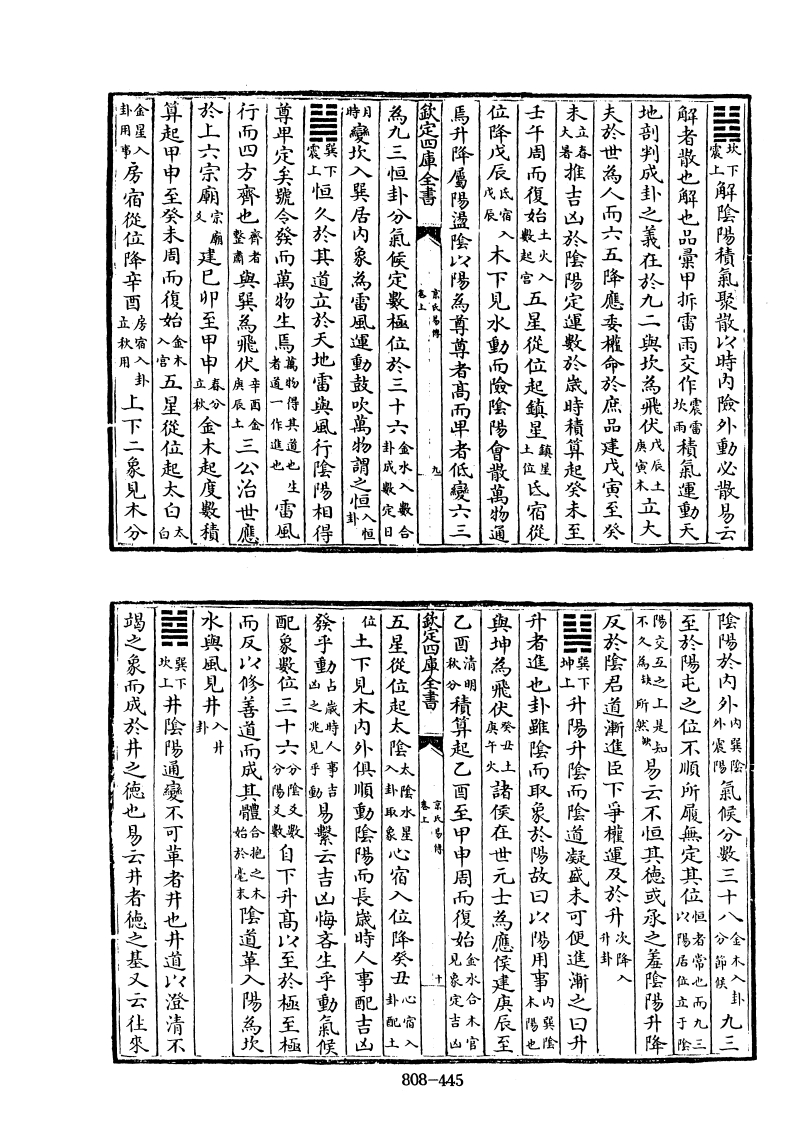 ䷧坎下震上解陰陽積氣聚散以時内險外動必散易云
解者散也解也品彚甲拆雷雨交作震雷坎雨積氣運動天
地剖判成卦之義在於九二與坎為飛伏戊辰土庚寅木立大
夫於世為人而六五降應委權命於庶品建戊寅至癸
未立春大暑推吉凶於隂陽定運數於歲時積算起癸未至
壬午周而復始土火入數起宫五星從位起鎮星鎮星土位氐宿從
位降戊辰氐宿入戊辰木下見水動而險陰陽會散萬物通
焉升降屬陽盪陰以陽為尊尊者高而卑者低變六三
欽定四庫全書 京氏易傳卷上 九
為九三恒卦分氣候定數極位於三十六金水入數合卦成數定日
月時變坎入巽居内象為雷風運動鼓吹萬物謂之恒入恒卦
䷟巽下震上恒久於其道立於天地雷與風行陰陽相得
尊卑定矣號令發而萬物生焉萬物得其道也生者道一作進也雷風
行而四方齊也齊者整肅與巽為飛伏辛酉金庚辰土三公治世應
於上六宗廟宗廟爻建已卯至甲申春分立秋金木起度數積
算起甲申至癸未周而復始金木入宫五星從位起太白太白
金星入卦用事房宿從位降辛酉房宿入卦立秋用上下二象見木分
陰陽於内外内巽陰外震陽氣候分數三十八金木入卦分節候九三
至於陽屯之位不順所履無定其位恒者常也而九三以陽居位立于陰三
陽交互之工是知不久為缺所然缺易云不恒其德或承之羞陰陽升降
反於陰君道漸進臣下爭權運及於升次降入升卦
䷭巽下坤上升陽升陰而陰道凝盛未可便進漸之曰升
升者進也卦雖陰而取象於陽故曰以陽用事内巽陰木陽也
與坤為飛伏癸丑土庚午火諸侯在世元士為應侯建庚辰至
乙酉清明秋分積算起乙酉至甲申周而復始金水合木官見象定吉凶
欽定四庫全書 京氏易傳卷上 十
五星從位起太陰太陰水星入卦取象心宿入位降癸丑心宿入卦配土
位土下見木内外俱順動陰陽而長歲時人事配吉凶
發乎動占歲時人事吉凶之兆見乎動易繫云吉凶悔吝生乎動氣候
配象數位三十六分陰爻數分陽爻數自下升髙以至於極至極
而反以修善道而成其體合抱之木始於毫末陰道革入陽為坎
水與風見井入井卦
䷯巽下坎上井陰陽通變不可革者井也井道以澄清不
竭之象而成於井之德也易云井者德之基又云往來
808-445